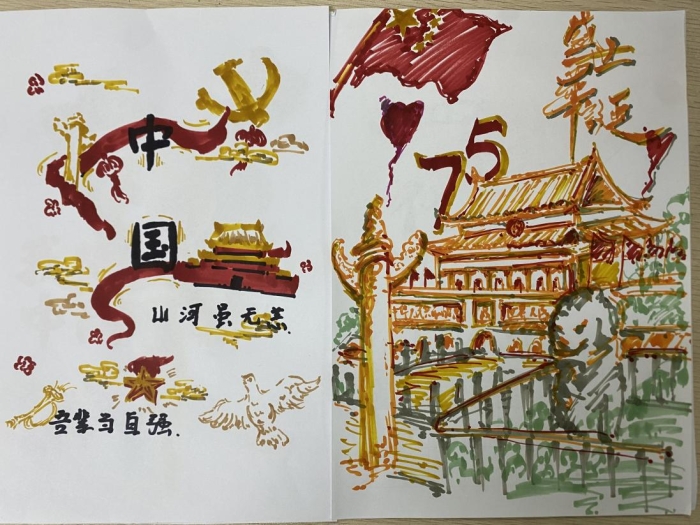 中
国
山河虽无恙
吾辈当自强.
盛世
华诞
75